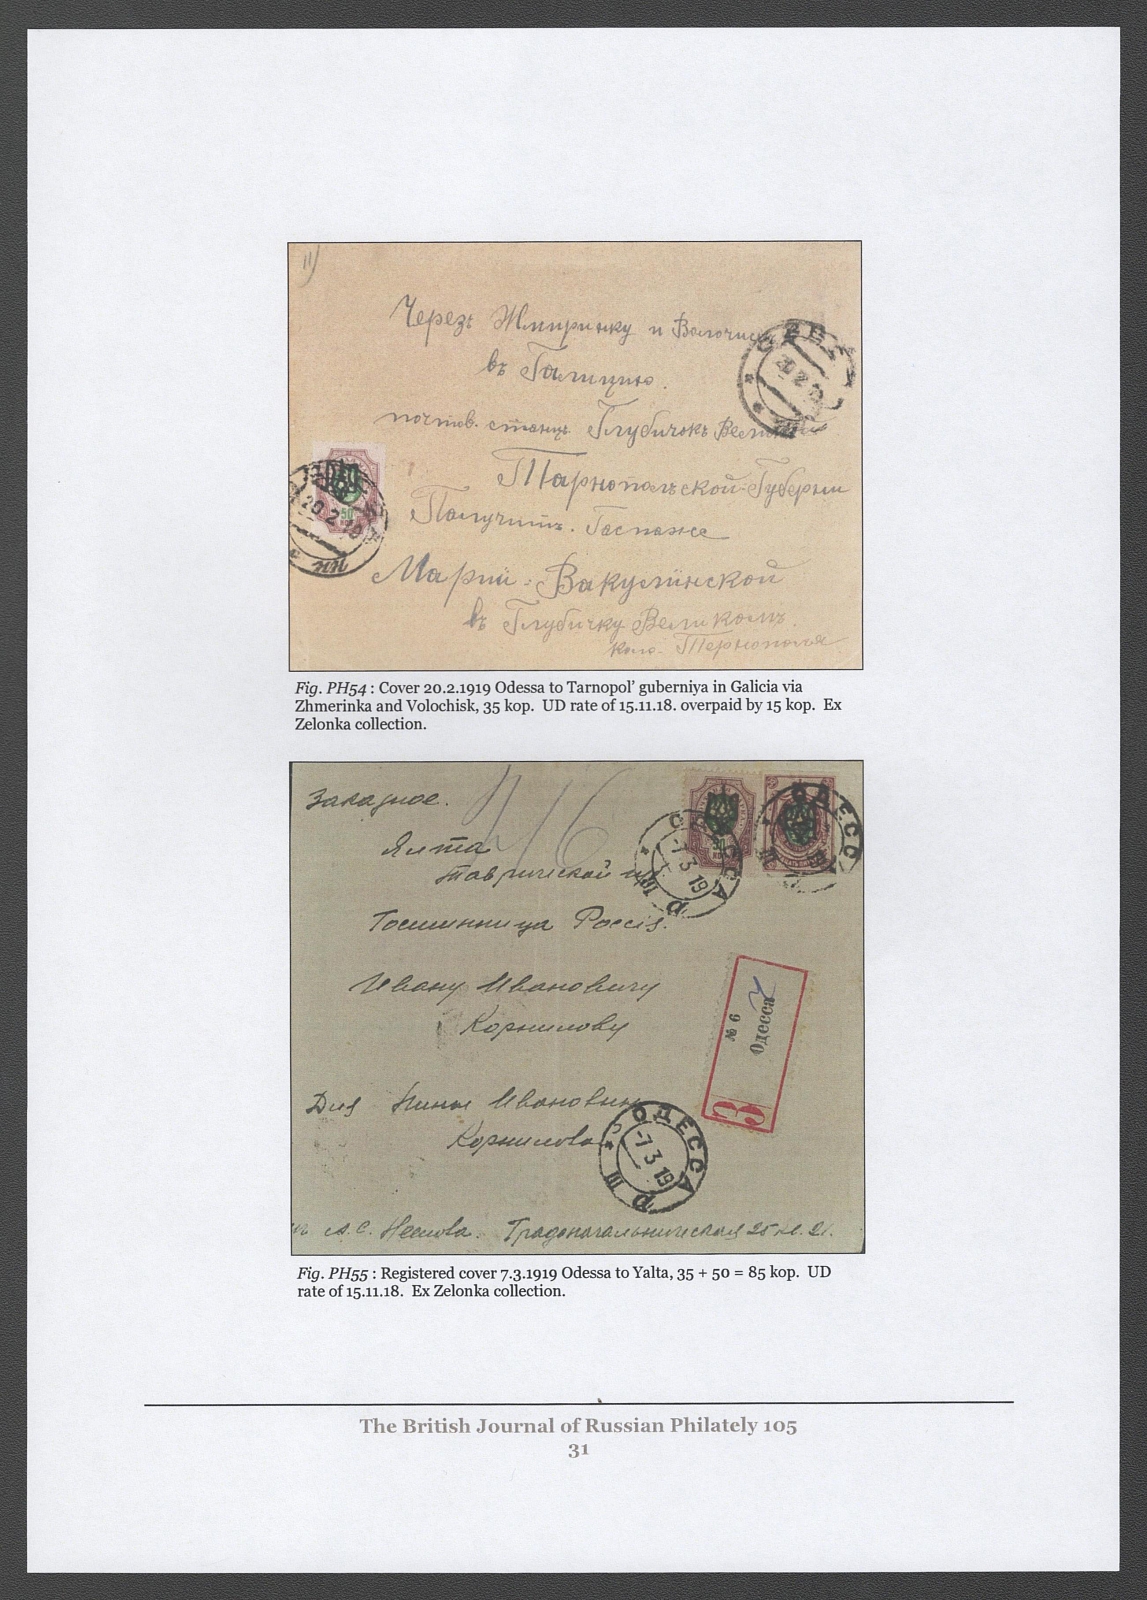 Черезъ Жмиринку и Волочис
въ Галицію.
почтов. станц Глубичокъ Велик
Тарнопольской Губерніи
Получить. Госпоже
Марій Вакулинской
въ Глубичку Великомъ.
коло Тернополя
50
20 2 19
Fig. PH54 : Cover 20.2.1919 Odessa to Tarnopol’ guberniya in Galicia via
Zhmerinka and Volochisk, 35 kop. UD rate of 15.11.18. overpaid by 15 kop. Ex
Zelonka collection.
Заказное.
416
Ялта
Таврической
Гостинница Россія.
Ивану Ивановичу
Корнилову
Для Нины Ивановны
Корнилова
ОДЕССА
-7 3 19
З
№ 6
Одесса
ОДЕССА
-7 3 19
А. С. Градоначальническая 21.
Fig. PH55 : Registered cover 7.3.1919 Odessa to Yalta, 35 + 50 = 85 kop. UD
rate of 15.11.18. Ex Zelonka collection.
The British Journal of Russian Philately 105
31